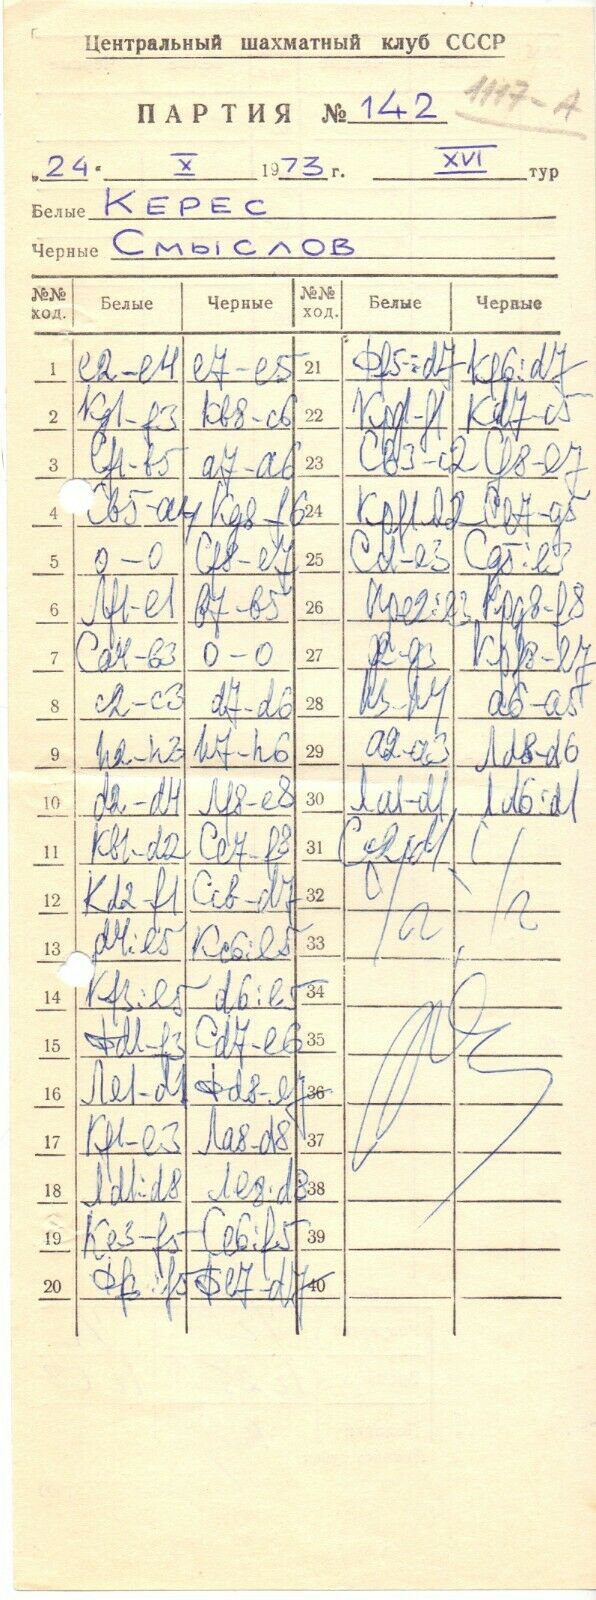 Центральный шахматный клуб СССР
1117-А
ПАРТИЯ № 142
„24“ X 1973 г. XVI тур
Белые Керес
Черные Смыслов
№№ ход. Белые Черные №№ ход. Белые Черные
1 e2-e4 e7-e5 21 Фf5:d7 Кf6:d7
2 Кg1-f3 Кb8-c6 22 Крg1-f1 Кd7-c5
3 Сf1-b5 a7-a6 23 Сb3-c2 Сf8-e7
4 Сb5-a4 Кg8-f6 24 Крf1-e2 Сe7-g5
5 0-0 Сf8-e7 25 Сc1-e3 Сg5:e3
6 Лf1-e1 b7-b5 26 Крe2:e3 Крg8-f8
7 Сa4-b3 0-0 27 g2-g3 Крf8-e7
8 c2-c3 d7-d6 28 h3-h4 a6-a5
9 h2-h3 h7-h6 29 a2-a3 Лd8-d6
10 d2-d4 Лf8-e8 30 Лa1-d1 Лd6:d1
11 Кb1-d2 Сe7-f8 31 Сc2:d1
12 Кd2-f1 Сc8-d7 32 1/2 1/2
13 d4:e5 Кc6:e5 33
14 Кf3:e5 d6:e5 34
15 Фd1-f3 Сd7-e6 35
16 Лe1-d1 Фd8-e7 36
17 Кf1-e3 Лa8-d8 37
18 Лd1:d8 Лe8:d8 38
19 Кe3-f5 Сe6:f5 39
20 Фf3:f5 Фe7-d7 40